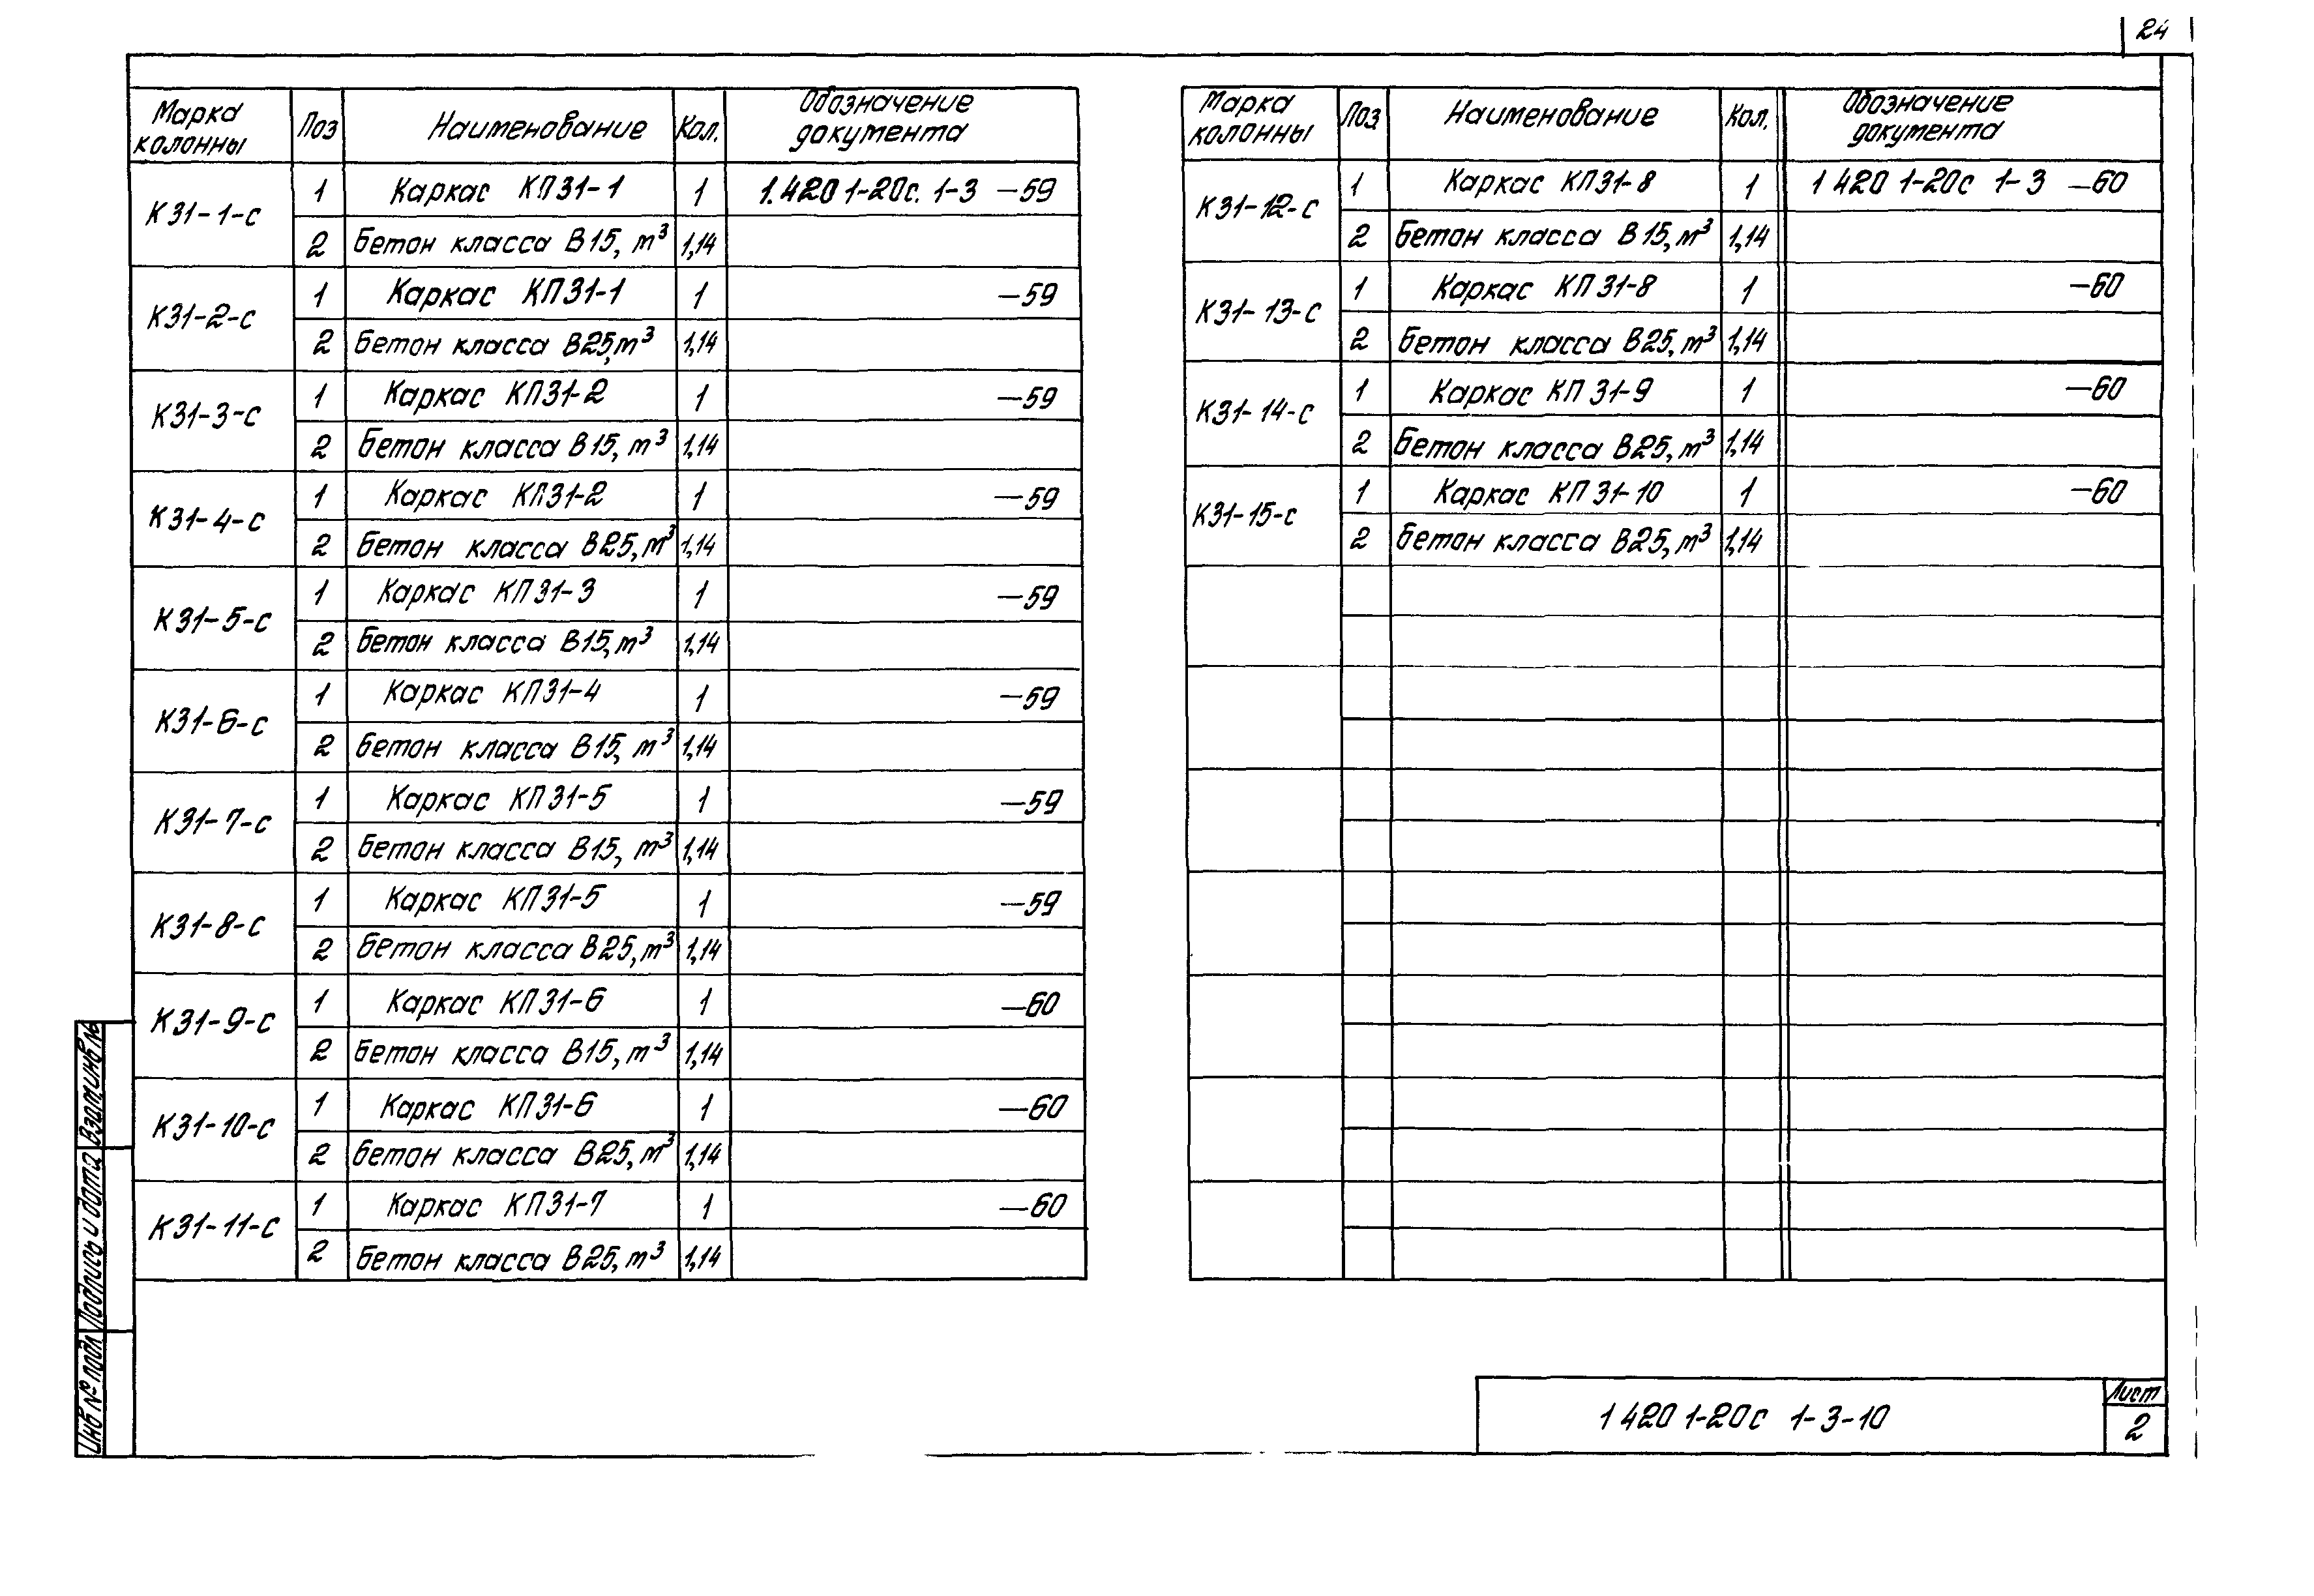 24
Марка колонны Поз Наименование Кол. Обозначение документа
К31-1-с 1 Каркас КП31-1 1 1.420 1-20с. 1-3 -59
2 Бетон класса В15, м³ 1,14
К31-2-с 1 Каркас КП31-1 1 -59
2 Бетон класса В25, м³ 1,14
К31-3-с 1 Каркас КП31-2 1 -59
2 Бетон класса В15, м³ 1,14
К31-4-с 1 Каркас КП31-2 1 -59
2 Бетон класса В25, м³ 1,14
К31-5-с 1 Каркас КП31-3 1 -59
2 Бетон класса В15, м³ 1,14
К31-6-с 1 Каркас КП31-4 1 -59
2 Бетон класса В15, м³ 1,14
К31-7-с 1 Каркас КП31-5 1 -59
2 Бетон класса В15, м³ 1,14
К31-8-с 1 Каркас КП31-5 1 -59
2 Бетон класса В25, м³ 1,14
К31-9-с 1 Каркас КП31-6 1 -60
2 Бетон класса В15, м³ 1,14
К31-10-с 1 Каркас КП31-6 1 -60
2 Бетон класса В25, м³ 1,14
К31-11-с 1 Каркас КП31-7 1 -60
2 Бетон класса В25, м³ 1,14
Марка колонны Поз Наименование Кол. Обозначение документа
К31-12-с 1 Каркас КП31-8 1 1 420 1-20с 1-3 -60
2 Бетон класса В15, м³ 1,14
К31-13-с 1 Каркас КП31-8 1 -60
2 Бетон класса В25, м³ 1,14
К31-14-с 1 Каркас КП31-9 1 -60
2 Бетон класса В25, м³ 1,14
К31-15-с 1 Каркас КП31-10 1 -60
2 Бетон класса В25, м³ 1,14
Инв № подл Подпись и дата Взам.инв №
1 420 1-20с 1-3-10
Лист
2